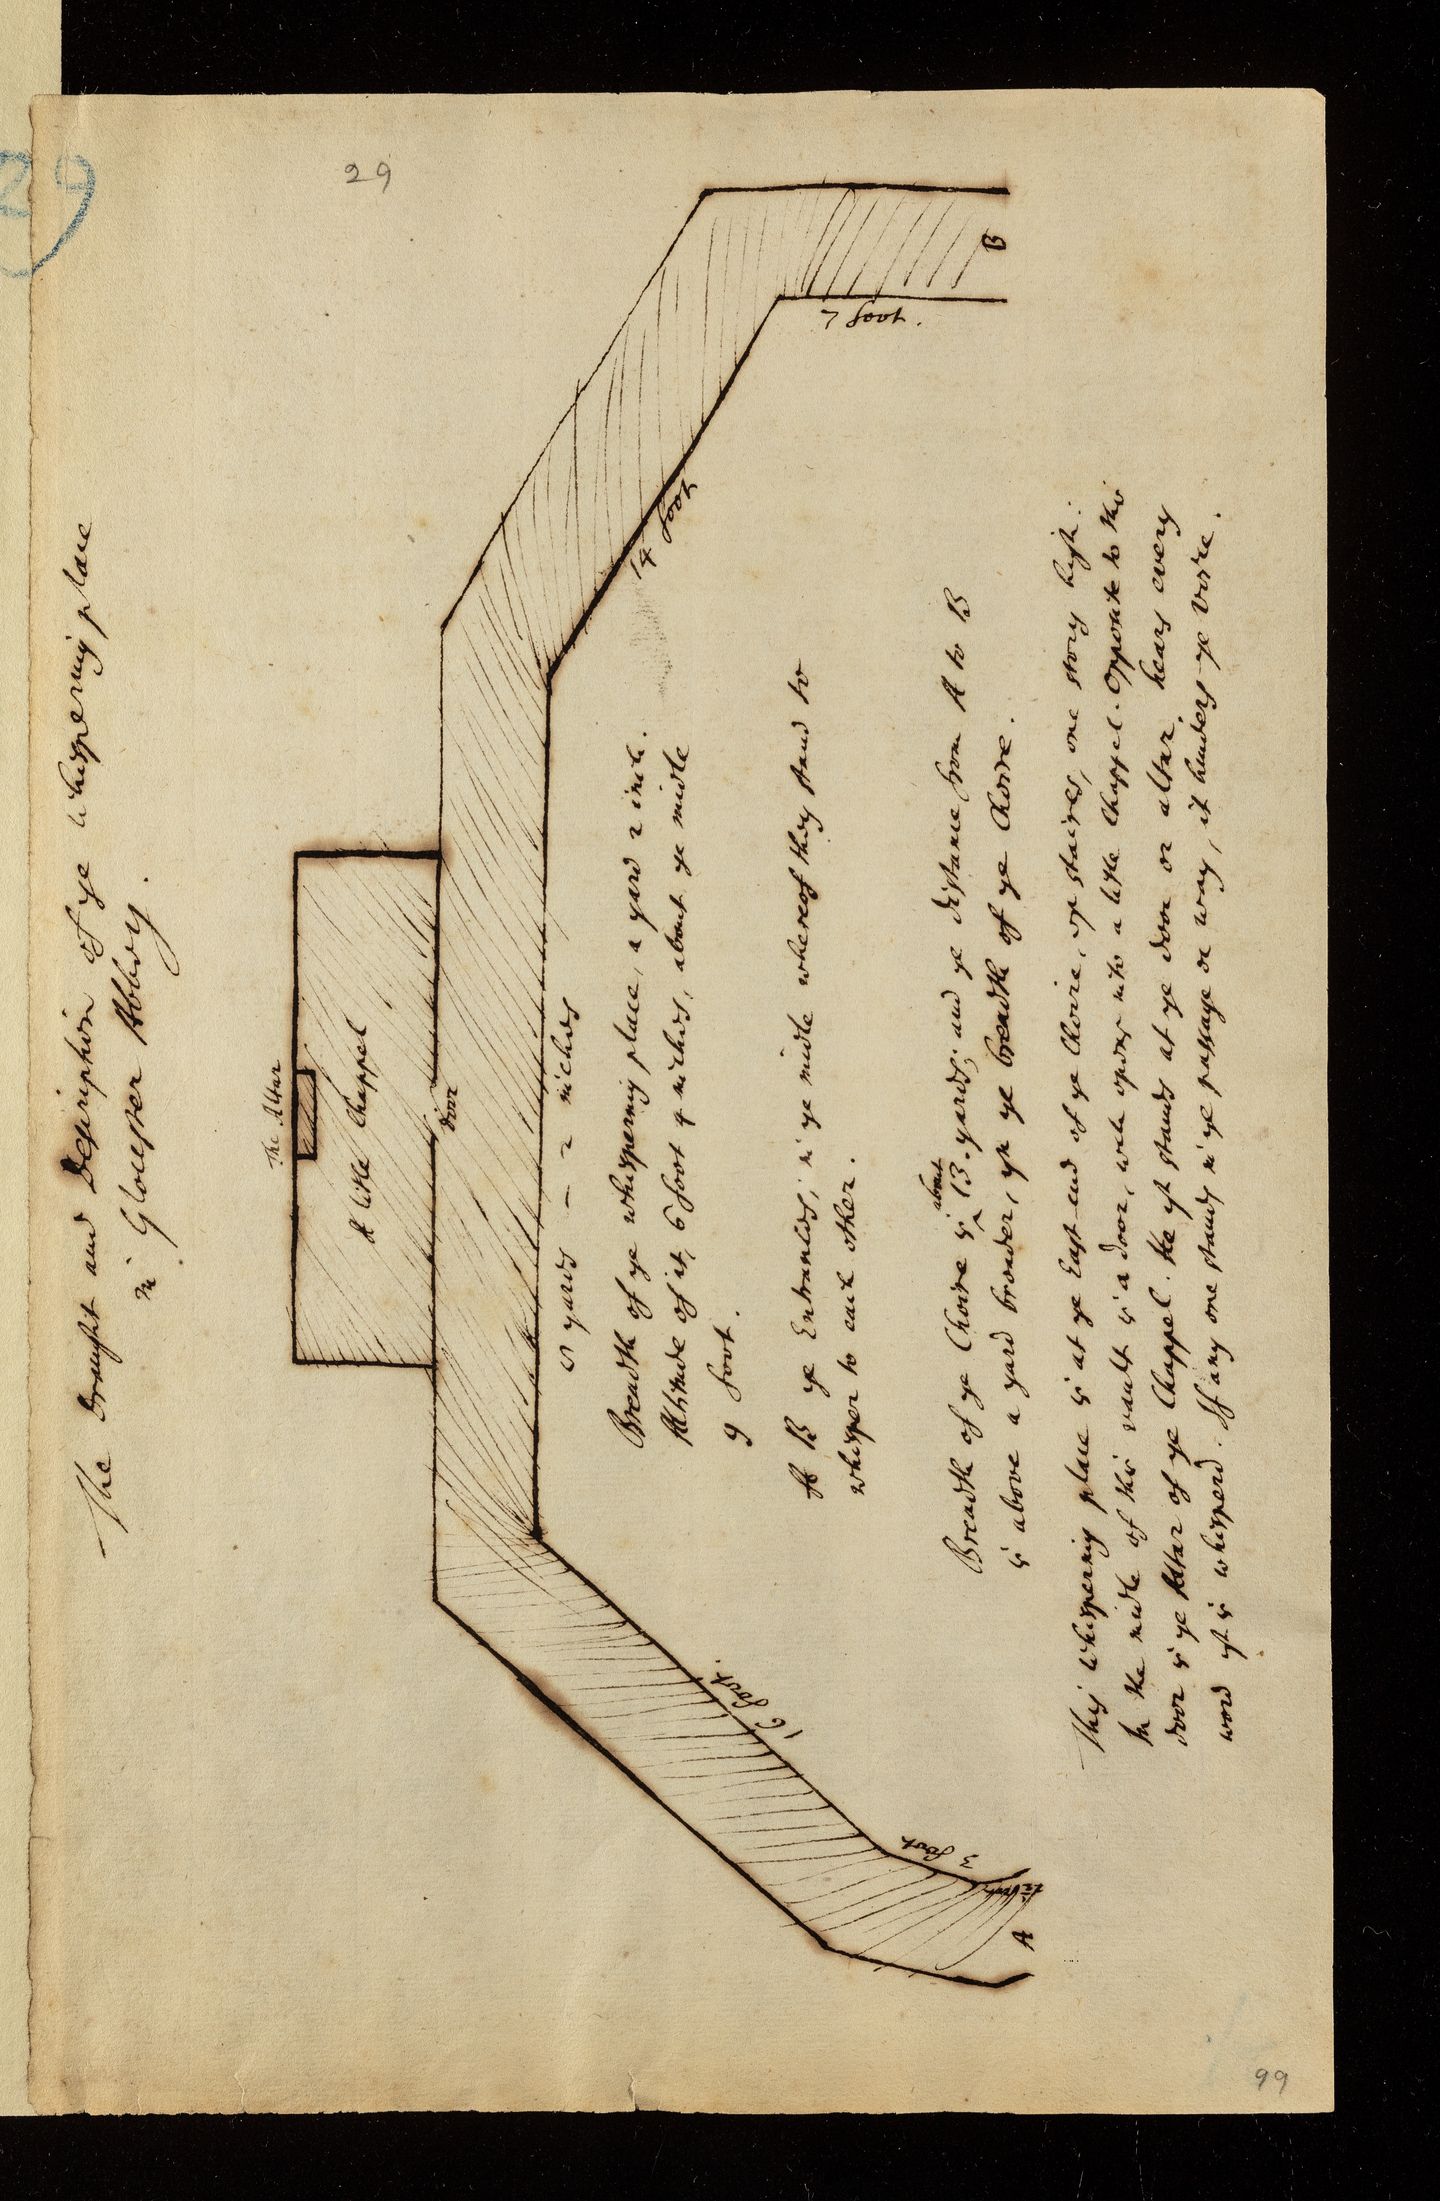 29
29
The Draught and Description of ye whispering place
in Glocester Abbey.
The Altar
A litle Chappel
Door
5 yards - - 2 inches
16 foot.
3 foot
A
14 foot
7 foot.
B
Breadth of ye whispering place, a yard 2 inch.
Altitude of it, 6 foot 4 inches, about ye midle
9 foot.
A B ye Entrances, in ye midle whereof they stand to
whisper to each other.
about
Breadth of ye Choire is ^ 13. yards, and ye distance from A to B
is above a yard broader, yn ye breadth of ye Choire.
This whispering place is at ye East-end of ye Choire, up staires, one story high:
In the midle of this vault is a door, wch opens into a litle Chappel. Opposite to this
door is ye Altar of ye Chappel. He yt stands at ye door or altar, hears every
word yt is whisperd. If any one stands in ye passage or way, it hinders ye voice.
99